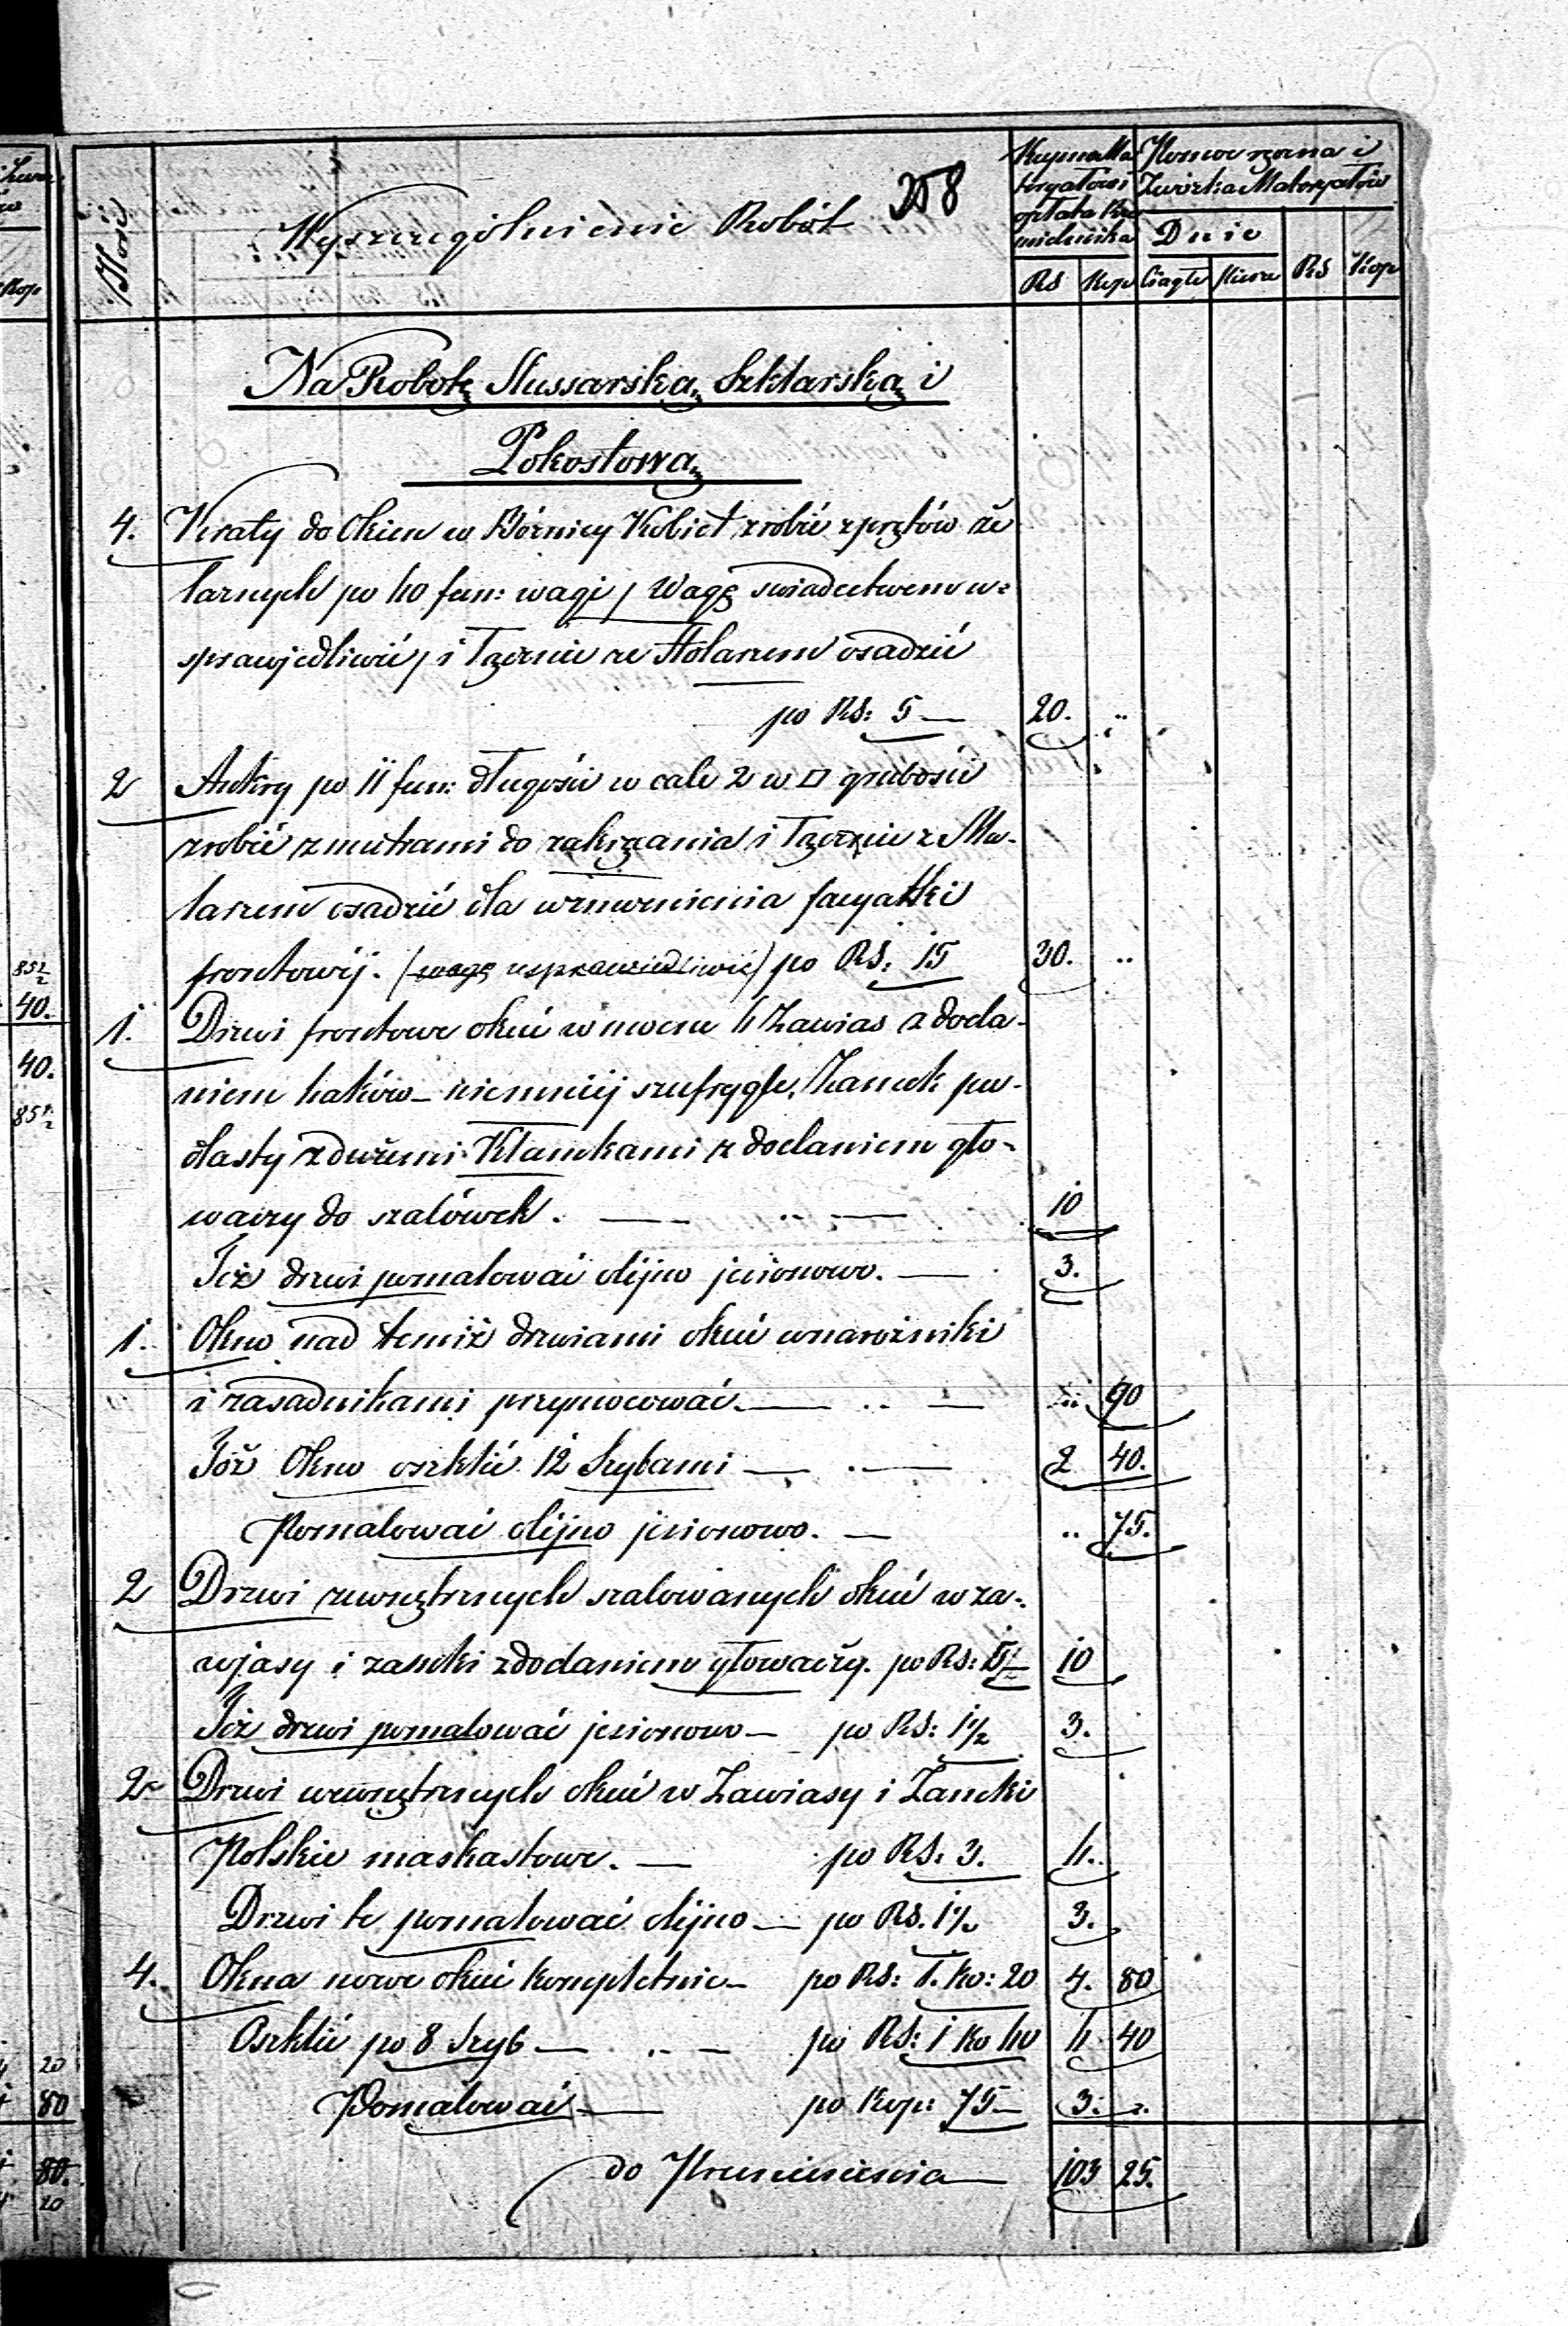 258
Ilość
Wyszczególnienie Robót
Kupno Ma
teryałów i
opłata Rze
mieślnika
Pomoc ręczna i
Zwózka Materyałów
Dnie
RS Kop Ciągłe Piesze RS Kop
Na Robotę Slussarską, Szklarską i
Pokostową
4. Kraty do Okien w Bóżnicy Kobiet zrobić z prętów że
laznych po 40 fun: wagi / Wagę swiadectwem u=
sprawjedliwić / i łącznie ze Stolarzem osadzić
po RS: 5 — 20. ..
2 Ankry po 11 fun: długości w cale 2 w □ grubości
zrobić z mutrami do zakręcania i łącznie z Mu-
larzem osadzić dla wzmocnienia facyatki
frontowéj. (wagę usprawiedliwić) po RS: 15 30. ..
1. Drzwi frontowe okuć w mocne 4 Zawias z doda-
niem haków — niemniéj szufrygle, Zamek pu-
dlasty z dużemi Klamkami z dodaniem gło-
waczy do szalówek. — .. — 10
Też drzwi pomalować olejno jesionowo. — 3.
1. Okno nad temiż drzwiami okuć w narożniki
i zasadnikami przymocować. — .. — .. 90
Toż Okno oszklić 12 Szybami — . — 2 40.
Pomalować olejno jesionowo. — .. 75.
2 Drzwi zewnętrznych szalowanych okuć w za-
wjasy i zamki z dodaniem głowaczy. po RS: 5 10
Też drzwi pomalować jesionowo — po RS: 1½ 3.
2 Drzwi wewnętrznych okuć w Zawiasy i Zamki
Polskie maskastowe. — po RS: 3.
Drzwi te pomalować olejno — po RS. 1½ 3.
4. Okna nowe okuć kompletnie — po RS: 1. Ko: 20 4. 80
Oszklić po 8 Szyb — .. — po RS: 1 Ko 40 40
Pomalować — po Kop: 75 — 3. ..
do Przeniesienia — 103 25.
85½
40.
40.
85½
20
80
80.
20